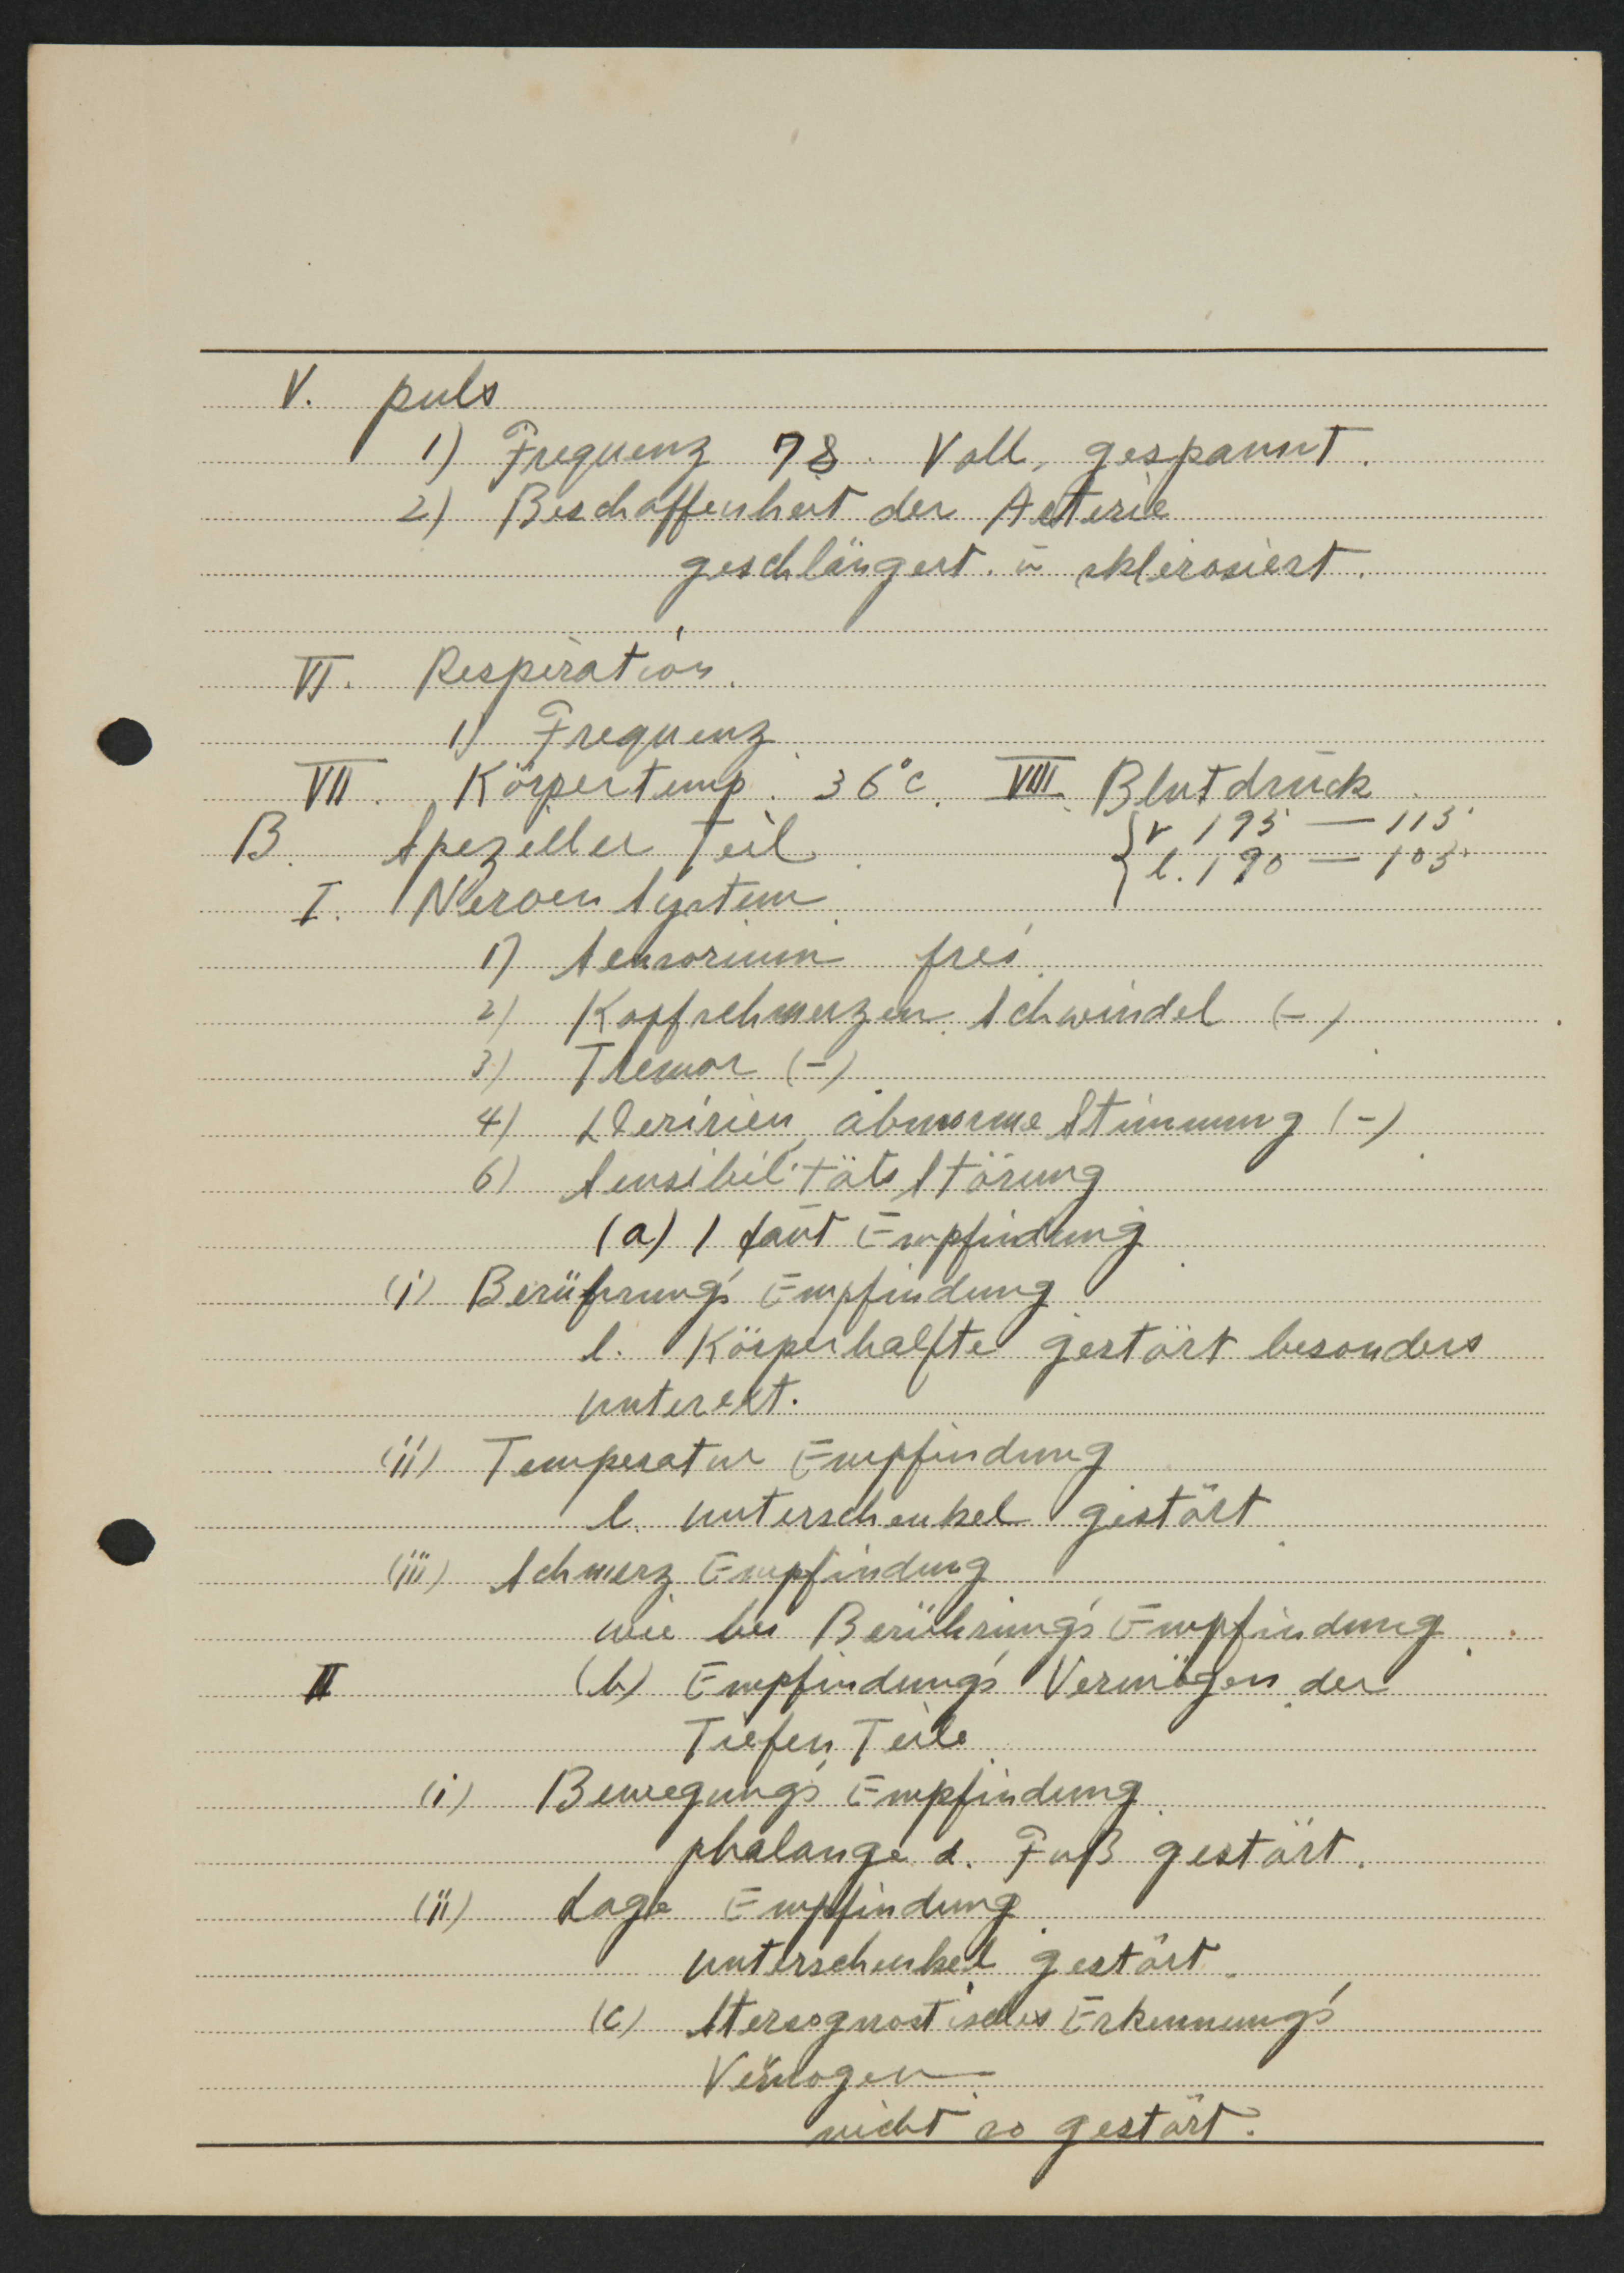 V. puls
1) Frequenz 78. Voll, gespannt.
2) Beschaffenheit der Arterie
geschlängert. ū sklerosiert.
VI. Respiration.
1) Frequenz
VII. Körpertemp. 36°C. VIII. Blutdruck
{r 195 — 113
B. Spezieller Teil
{l. 190 — 103
I. Nerven System
1) Sensorium frei
2) Kopfschmerzen Schwindel (-)
3) Tremor (-)
4) Deririen, abnorme Stimmung (-)
6) Sensibilitäts Störung
(a) Haut Empfindung
(i) Berührung's Empfindung
l. Körperhalfte gestört besonders
unterext.
(ii) Temperatur Empfindung
l. unterschenkel gestört
(iii) Schmerz Empfindung
wie bei Berührung's Empfindung
II (b) Empfindung's Vermögen der
Tiefen Teile
(i) Bewegung's Empfindung
phalange d. Fuß gestört.
(ii) Lage Empfindung
unterschenkel gestört.
(c) Stereognostisches Erkennung's
Vermogen
nicht so gestört.